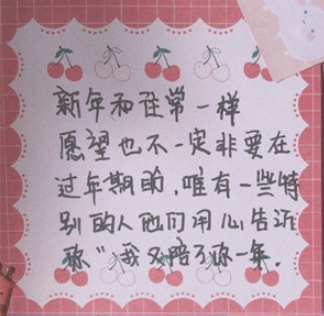 新年和往常一样
愿望也不一定非要在
过年期盼,唯有一些特
别的人他们用心告诉
你"我又陪了你一年.